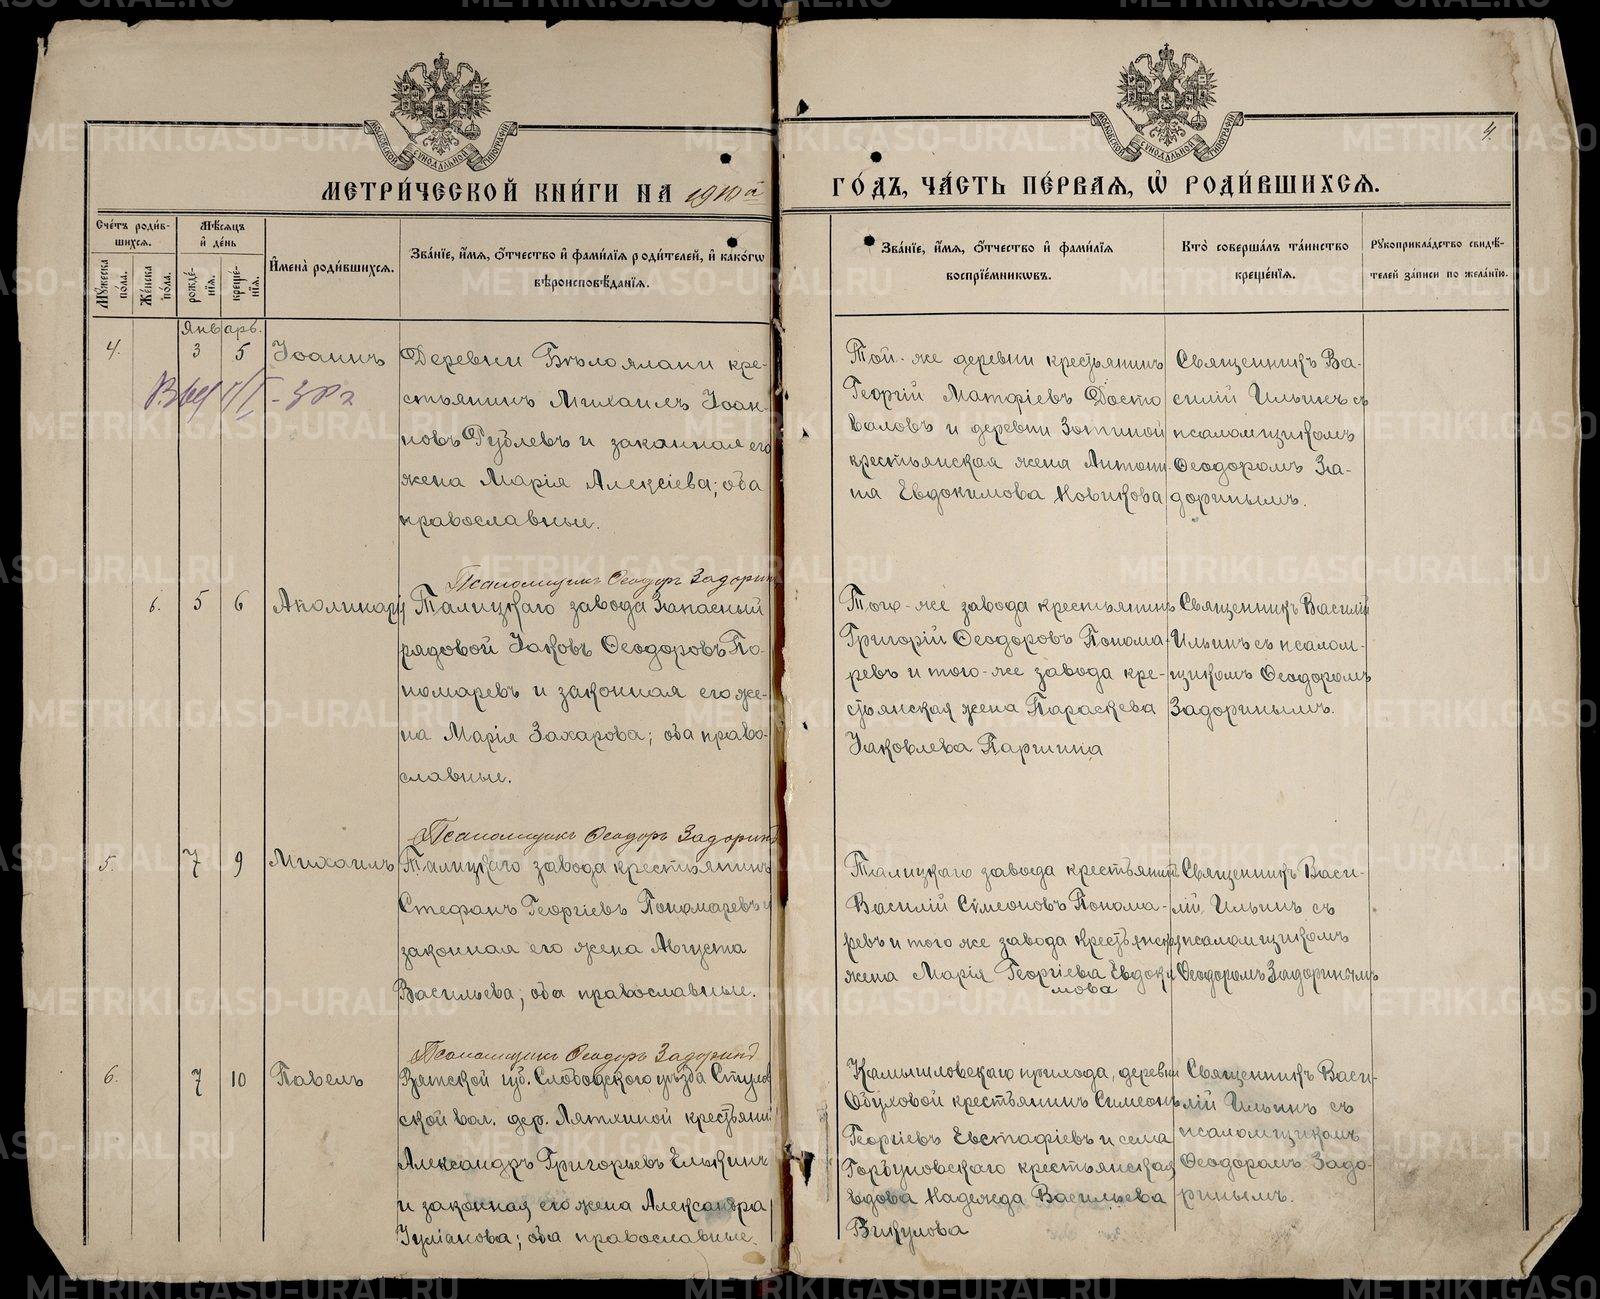 4.
МЕТРИ́ЧЕСКОЙ КНИ́ГИ НА 1910й
ГО́ДЪ, ЧА́СТЬ ПЕ́РВАЯ, Ѽ РОДИ́ВШИХСЯ.
Сче́тъ роди́в-
шихся.
Мѣ́сяцъ
и҆ де́нь
Му́жеска по́ла.
Же́нска по́ла.
рожде́-
нїя.
креще́-
нїя.
И҆мена̀ роди́вшихся.
Зва́нїе, и҆́мя, ѻ҆́тчество и҆ фами́лїя роди́телей, и҆ како́гѡ
вѣроисповѣ́данїя.
Зва́нїе, и҆́мя, ѻ҆́тчество и҆ фами́лїя
воспрїе́мникѡвъ.
Кто̀ соверша́лъ та́инство
креще́нїя.
Рꙋкоприкла́дство свидѣ́-
телей за́писи по жела́нїю.
Январь.
4.
3
5
Іоаннъ
Деревни Бѣлоялани кре-
стьянинъ Михаилъ Іоан-
новъ Рублевъ и законная его
жена Марія Алексіева; оба
православные.
Той-же деревни крестьянинъ
Георгій Матфіевъ Досто
валовъ и деревни Зотиной
крестьянская жена Антони-
на Евдокимова Новикова
Священникъ Ва-
силій Ильинъ съ
псаломщикомъ
Ѳеодоромъ За-
доринымъ.
Псаломщикъ Ѳеодоръ Задоринъ
6.
5
6
Аполинарія
Талицкаго завода Запасный
рядовой Іаковъ Ѳеодоровъ По-
номаревъ и законная его же-
на Марія Захарова; оба право-
славные.
Того-же завода крестьянинъ
Григорій Ѳеодоровъ Понома-
ревъ и того-же завода кре-
стьянская жена Параскева
Іаковлева Паршина
Священникъ Василій
Ильинъ съ псалом-
щикомъ Ѳеодоромъ
Задоринымъ.
Псаломщикъ Ѳеодоръ Задоринъ
5.
7
9
Михаилъ
Талицкаго завода крестьянинъ
Стефанъ Георгіевъ Пономаревъ и
законная его жена Августа
Васильева; оба православные.
Талицкаго завода крестьянинъ
Василій Сѵмеоновъ Понома-
ревъ и того же завода крестьянская
жена Марія Георгіева Евдоки
мова
Священникъ Васи-
лій Ильинъ съ
псаломщикомъ
Ѳеодоромъ Задоринымъ
Псаломщикъ Ѳеодоръ Задоринъ
6.
7
10
Павелъ
Вятской губ. Слободского уѣзда Стулов
ской вол. дер. Лятхиной крестьянин
Александръ Григорьевъ Елькинъ
и законная его жена Александра
Іуліанова; оба православные.
Камышловскаго прихода, деревни
Обуховой крестьянинъ Симеонъ
Георгіевъ Евстафіевъ и села
Горбуновскаго крестьянская
вдова Надежда Васильева
Викулова
Священникъ Васи-
лій Ильинъ съ
псаломщикомъ
Ѳеодоромъ Задо-
ринымъ.
METRIKI.GASO-URAL.RU